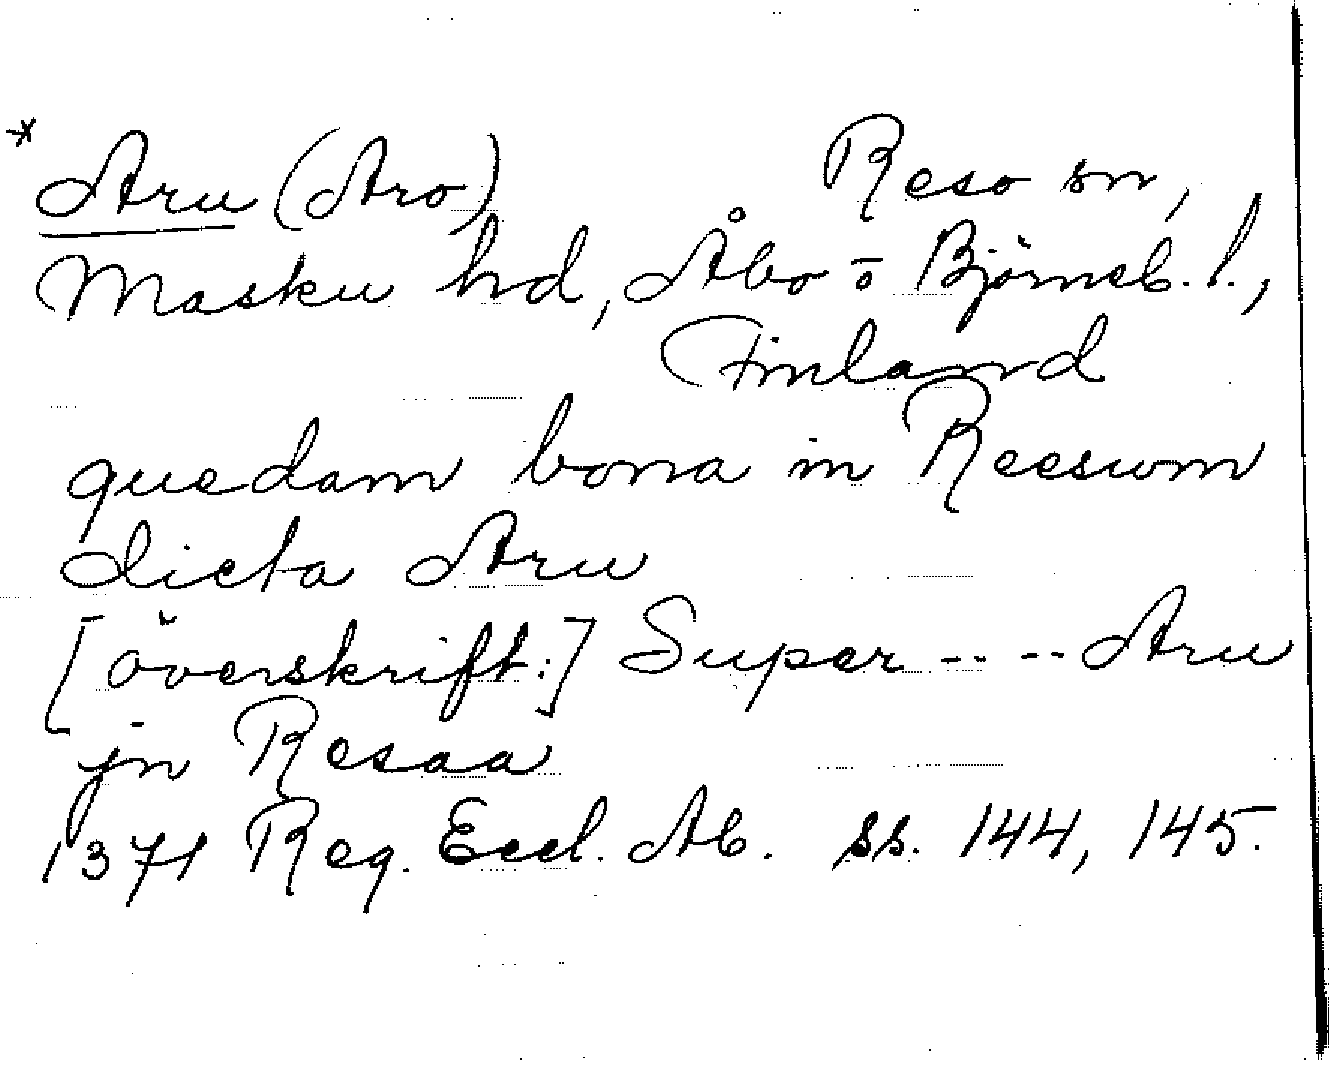 * Aru (Aro) Reso sn,
Masku hd, Åbo o Björneb. l.,
Finland
quedam bona in Reeswm
dicta Aru
[överskrift:] Super -- -- Aru
jn Resaa
1371 Reg. Eccl. Ab. ss. 144, 145.